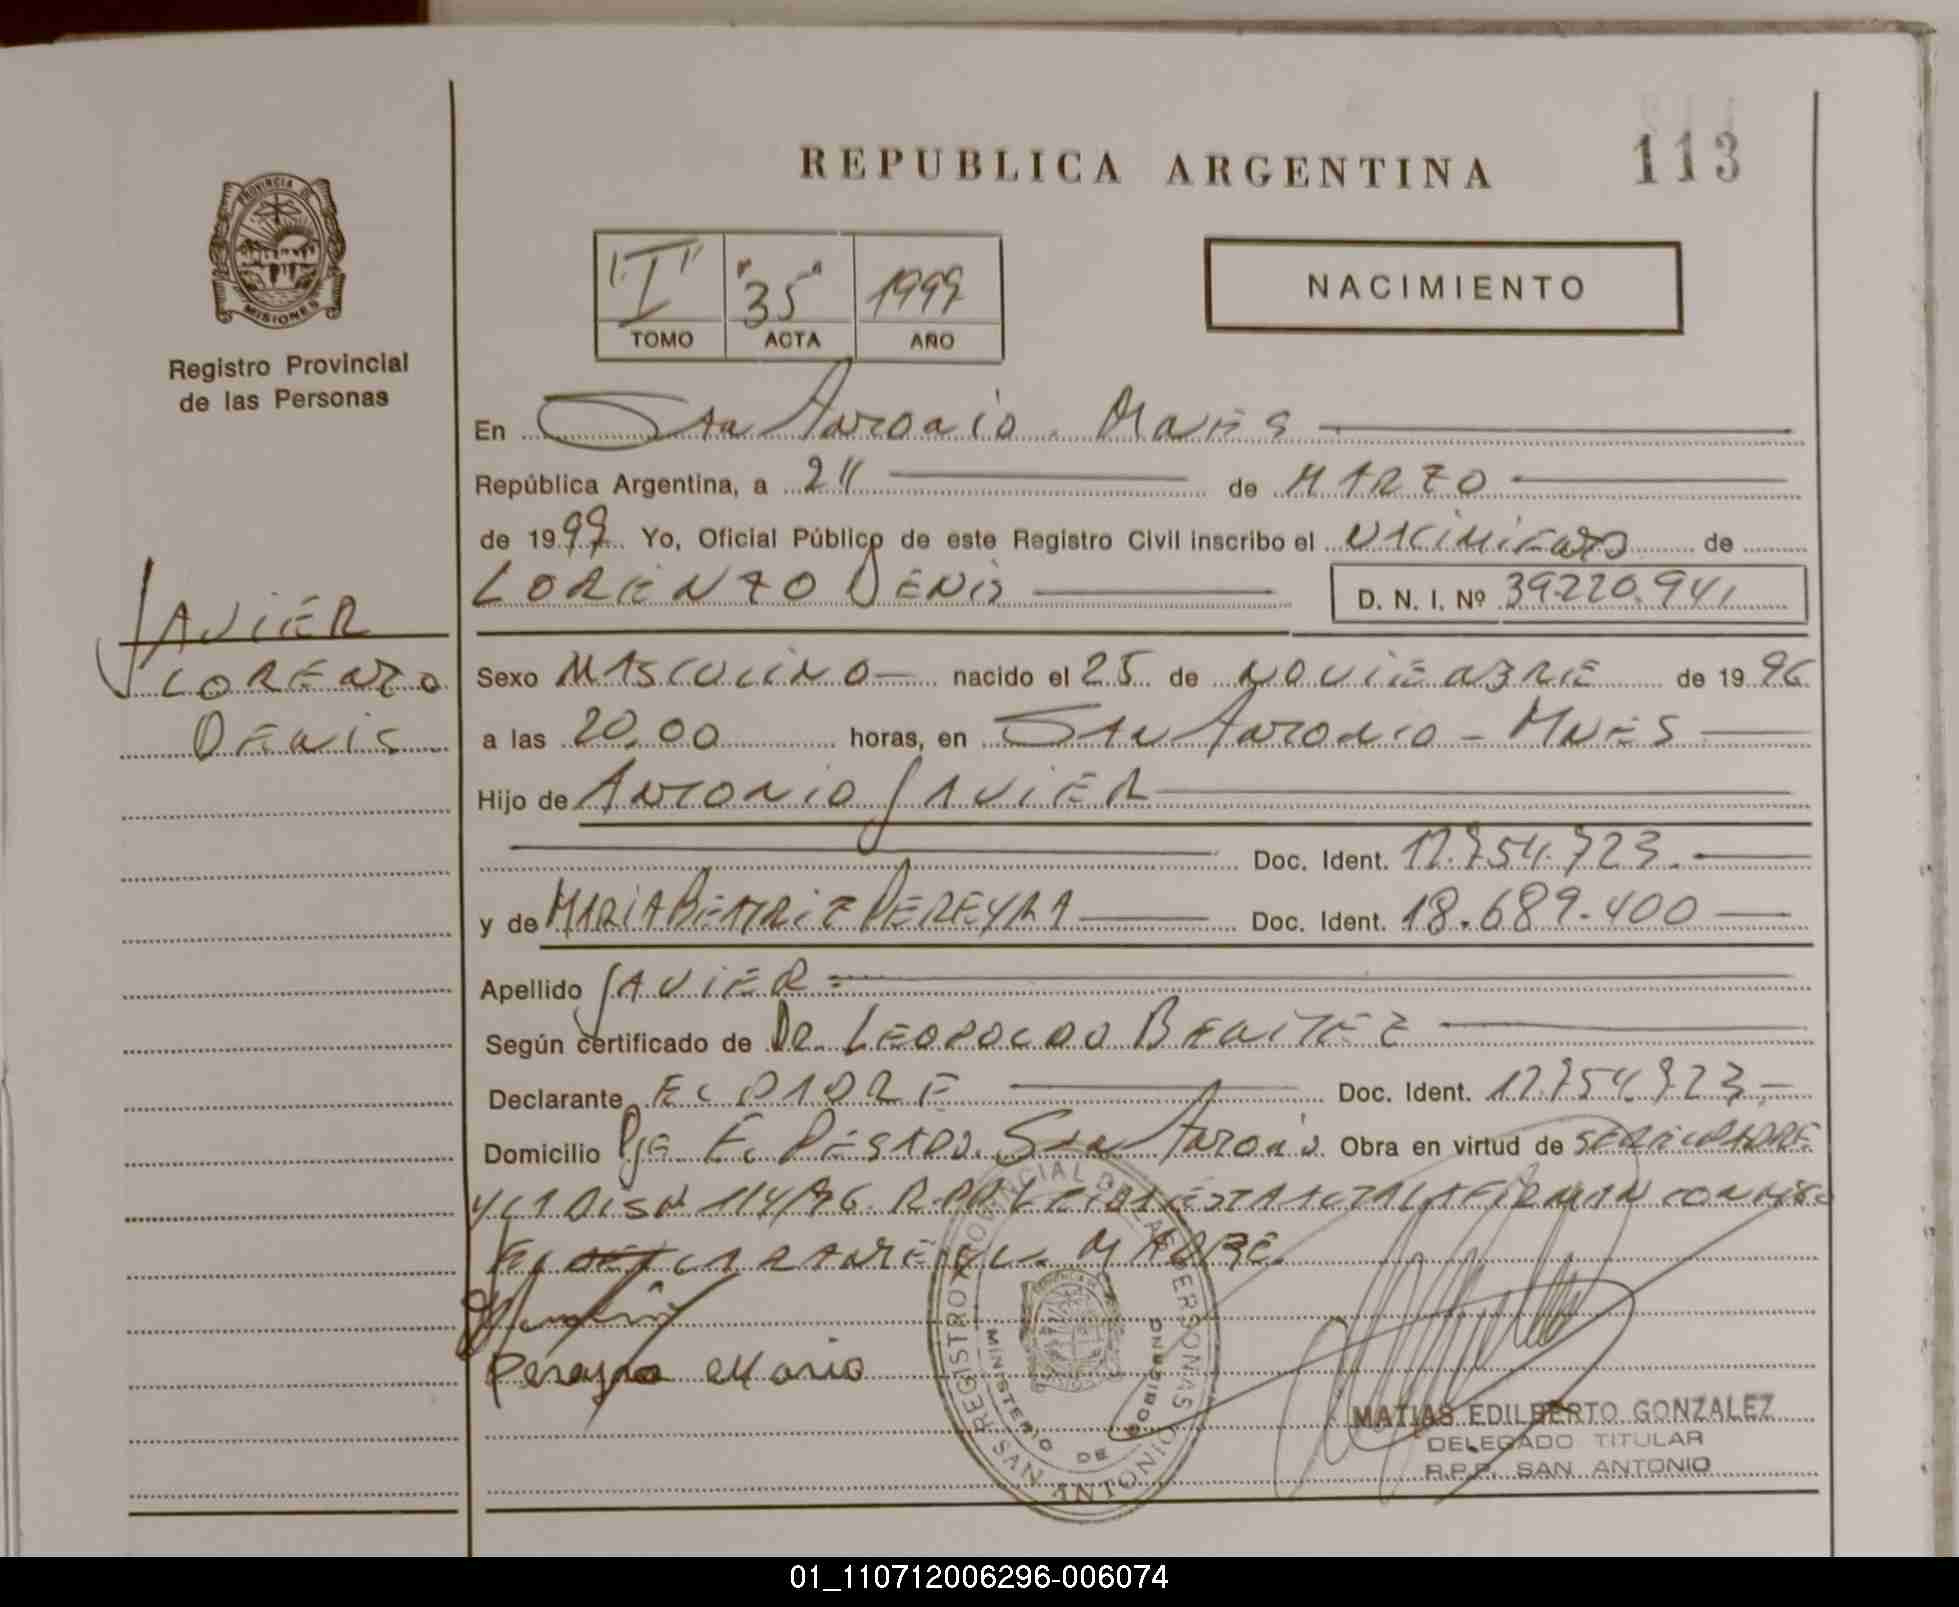 113
REPUBLICA ARGENTINA
PROVINCIA DE
MISIONES
Registro Provincial
de las Personas
"I" "35" 1999
TOMO ACTA AÑO
NACIMIENTO
En San Antonio. Mnes
República Argentina, a de MARZO
de 1999 Yo, Oficial Público de este Registro Civil inscribo el NACIMIENTO de
LORENZO DENIS D. N. I. Nº 39.220.941
JAVIER
LORENZO
DENIS
Sexo MASCULINO nacido el 25 de NOVIEMBRE de 1996
a las 20,00 horas, en San Antonio - Mnes
Hijo de Antonio JAVIER
Doc. Ident. 17.754.723.
y de MARIA BEATRIZ PEREYRA Doc. Ident. 18.689.400
Apellido JAVIER
Según certificado de Dr. LEOPOLDO BENITEZ
Declarante EL PADRE Doc. Ident. 17.754.723
Domicilio San Antonio. Obra en virtud de
Y LA DISP. 114/96. R.P.P. LEIDA ESTA ACTA LA FIRMAN CONMIGO
MADRE.
Pereyra Maria
REGISTRO PROVINCIAL DE LAS PERSONAS
MINISTERIO DE GOBIERNO
SAN ANTONIO
MATIAS EDILBERTO GONZALEZ
DELEGADO TITULAR
R.P.P. SAN ANTONIO
01_110712006296-006074